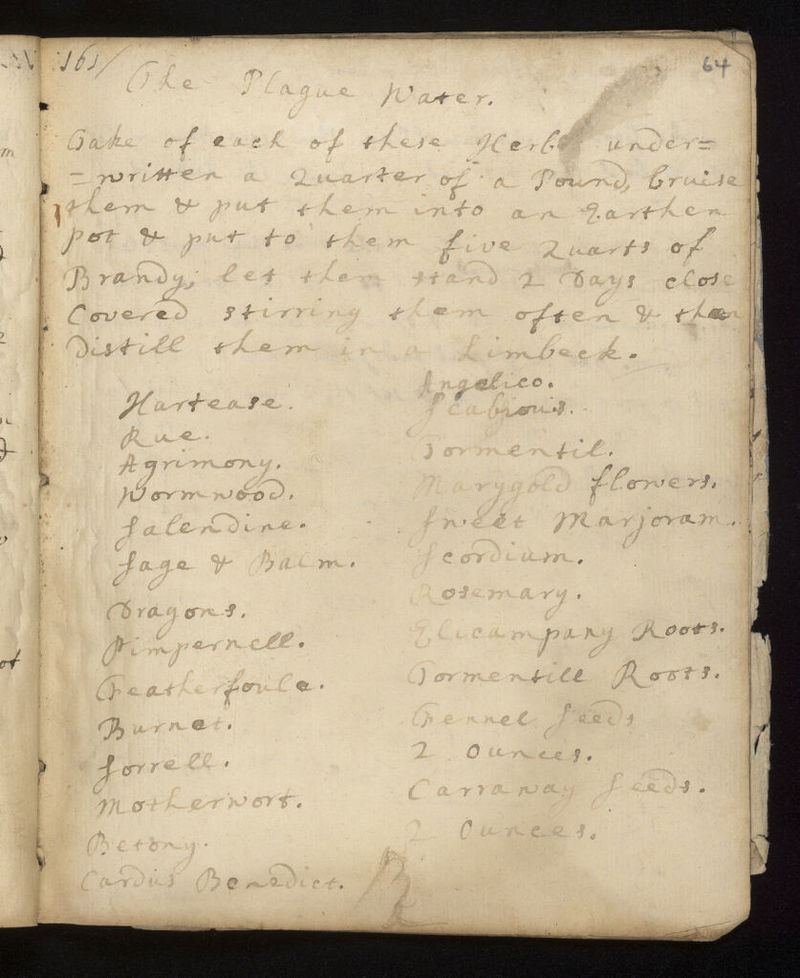 161/
64
The Plague Water.
Take of each of these Herbs under=
=written a Quarter of a Pound, bruise
them & put them into an Earthen
pot & put to them five Quarts of
Brandy; let them stand 2 Days close
Covered stirring them often & then
Distill them in a Limbeck.
Hartease.
Rue.
Agrimony.
Wormwood.
Salendine.
Sage & Balm.
Dragons.
Pimpernell.
Featherfoule.
Burnet.
Sorrell.
Motherwort.
Betony.
Cardus Benedict.
Angelico.
Scabious.
Tormentil.
Marygold flowers.
Sweet Marjoram.
Scordium.
Rosemary.
Elicampany Roots.
Tormentill Roots.
Fennel Seeds
2 Ounces.
Carraway Seeds.
2 Ounces.